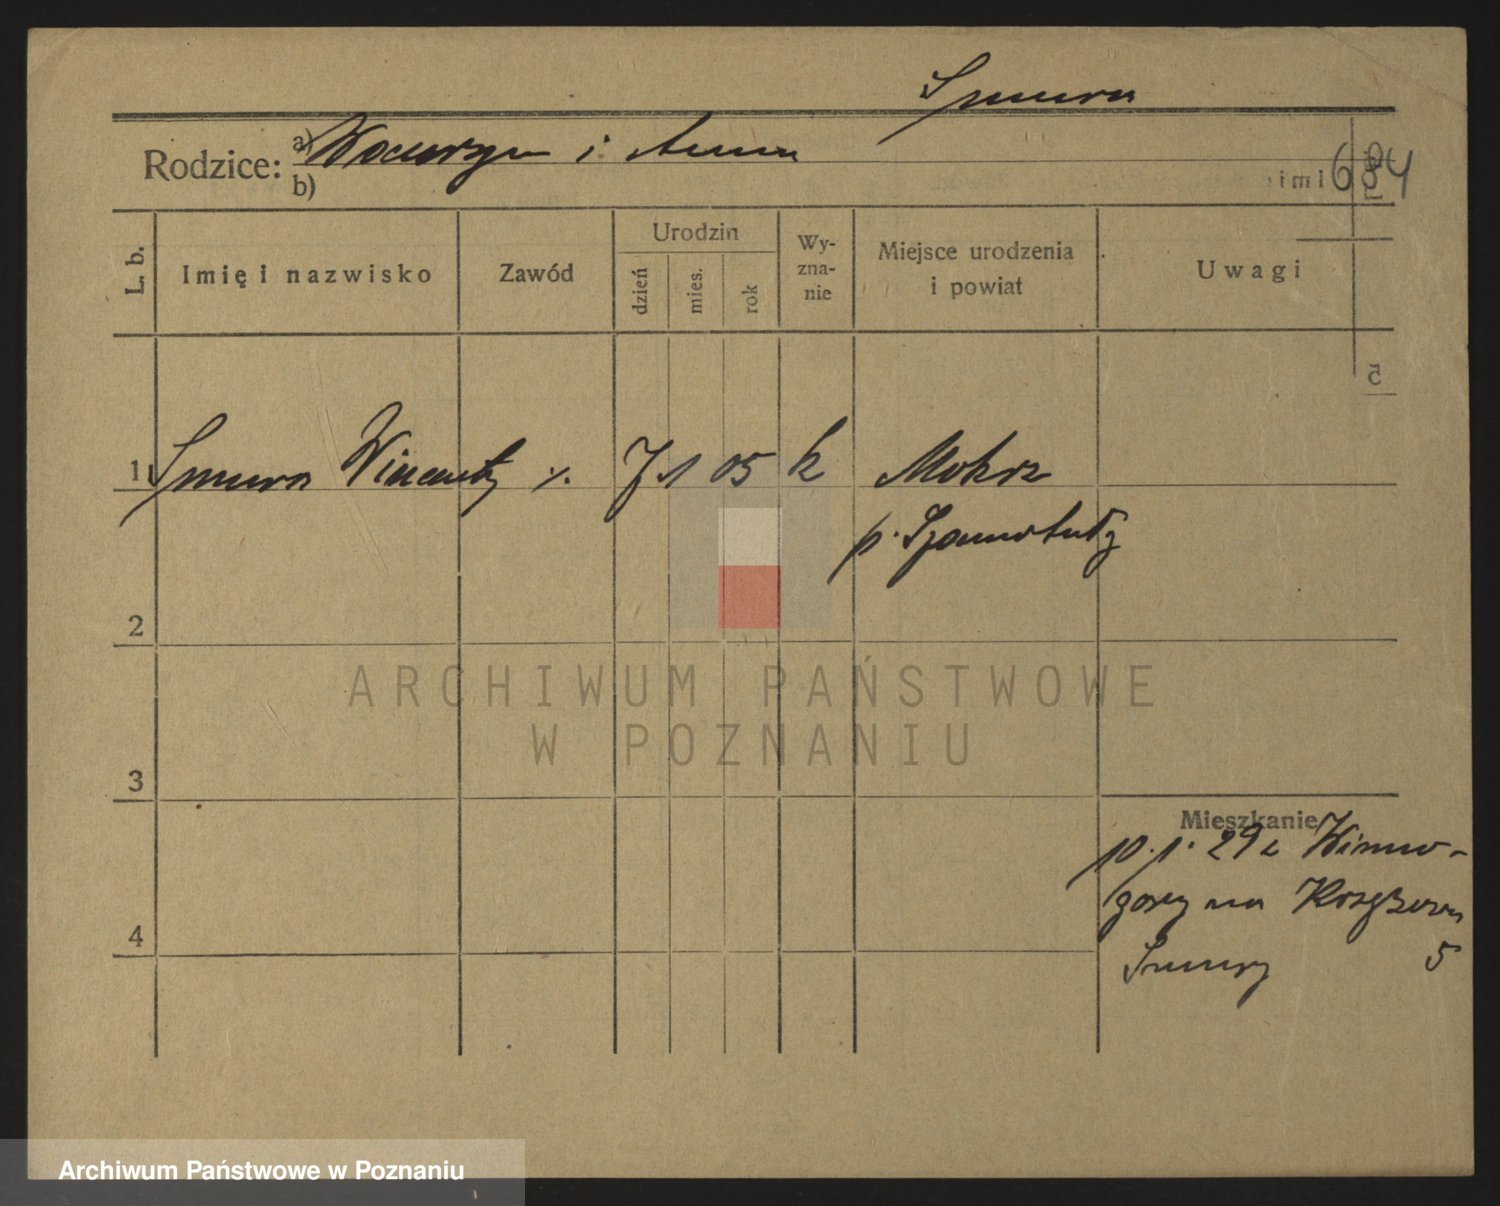 Smura
Rodzice: a) Wawrzyn i Anna
b)
iml 684
L. b.
Imię i nazwisko
Zawód
Urodzin
dzień
mies.
rok
Wy-
zna-
nie
Miejsce urodzenia
i powiat
Uwagi
1 Smura Wincenty %. 7 1 05 k Mokrz
p. Szamotuły
2
3
4
Mieszkanie
p. p. 29 z Winno-
góry na
Smury 5
ARCHIWUM PAŃSTWOWE
W POZNANIU
Archiwum Państwowe w Poznaniu